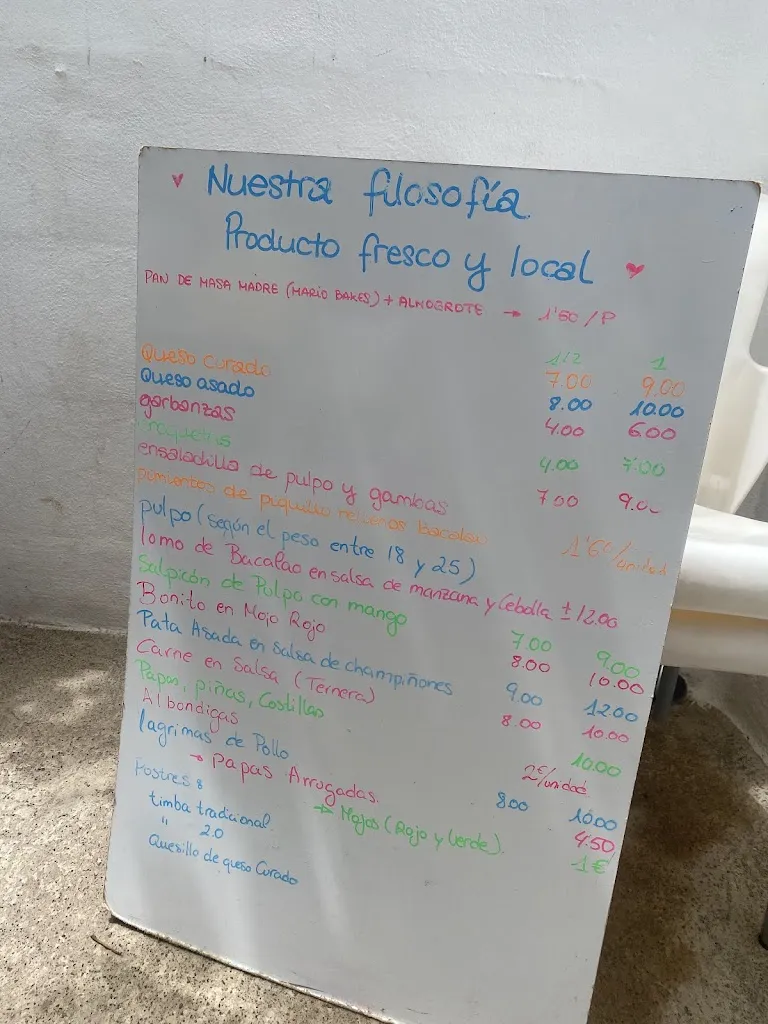 Nuestra filosofía
Producto fresco y local
PAN DE MASA MADRE (MARIO BAKES) + ALMOGROTE → 1'50 / P
1/2 1
Queso curado 7.00 9.00
Queso asado 8.00 10.00
garbanzas 4.00 6.00
croquetas 4.00 7.00
ensaladilla de pulpo y gambas 7.00 9.00
pimientos de piquillo rellenos Bacalau 1'6€/unidad
pulpo (según el peso entre 18 y 25)
lomo de Bacalao en salsa de manzana y Cebolla ± 12.00
Salpicón de Pulpo con mango 7.00 9.00
Bonito en Mojo Rojo 8.00 10.00
Pata Asada en Salsa de champiñones 9.00 12.00
Carne en Salsa (Ternera) 8.00 10.00
Papas, piñas, Costillas 10.00
Albondigas 2€/unidad
lagrimas de Pollo 8.00 10.00
→ Papas Arrugadas. 4.50
→ Mojos (Rojo y Verde). 1€
Postres :
timba tradicional.
" 2.0
Quesillo de queso Curado